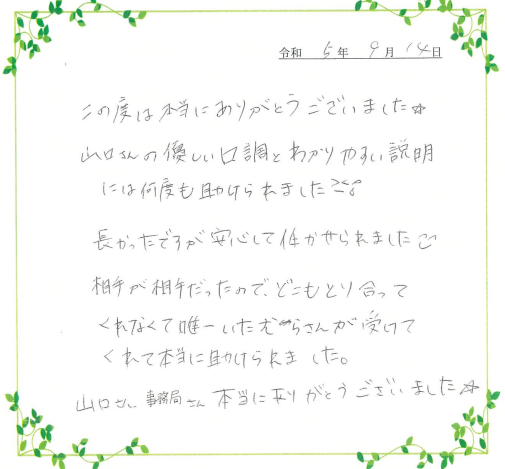 令和 5年 9月 14日
この度は本当にありがとうございました☆
山口さんの優しい口調とわかりやすい説明
には何度も助けられました
長かったですが安心して任かせられました
相手が相手だったので、どこもとり合って
くれなくて唯一いたむらさんが受けて
くれて本当に助けられました。
山口さん 事務局さん 本当にありがとうございました☆